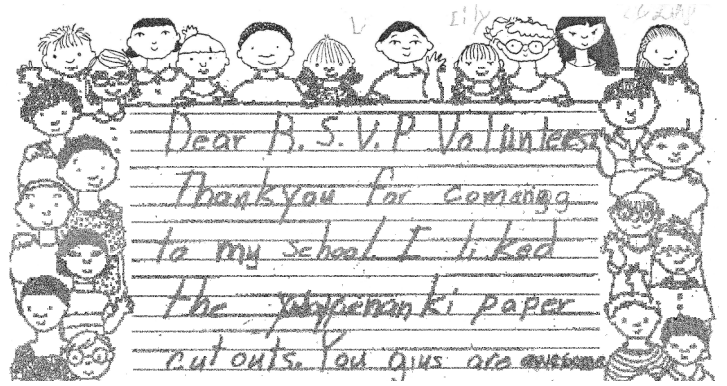 Lily
Dear R.S.V.P Volunteers
Thankyou for comangg
to my school. I liked
the paper
cut outs. You gius are awesome